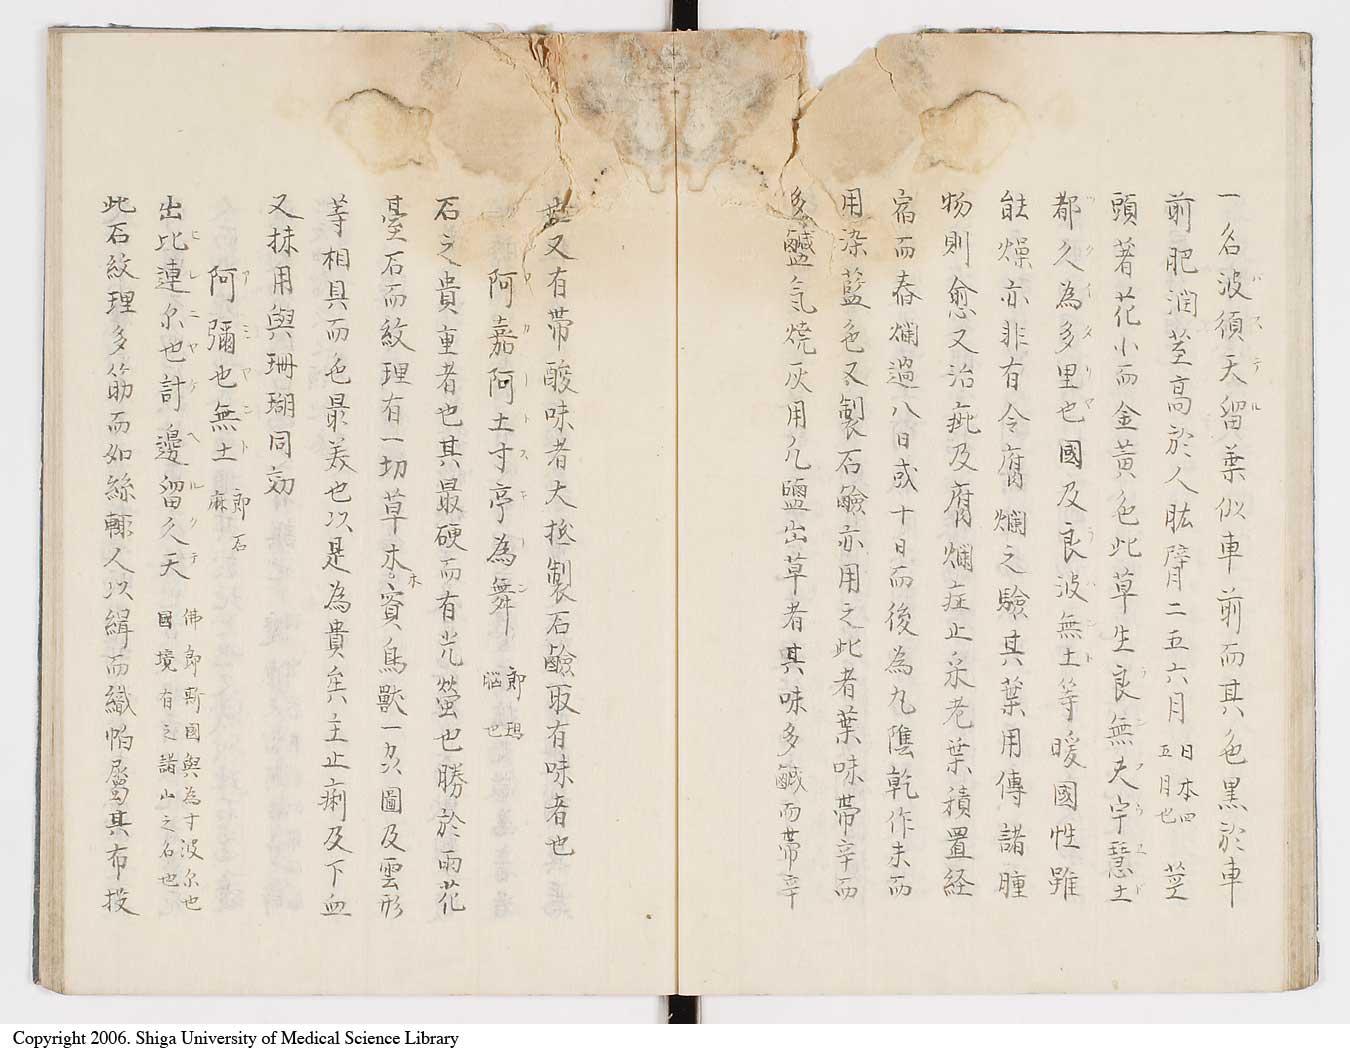 一名波須天留葉似車前而其色黒於車
前肥潤莖高於人肱臂二五六月日本四五月也莖
頭著花小而金黄色此草生良無夫宇慧土
都久為多里也國及良波無土等暖國性雖
能燥亦非有令腐爛之驗其葉用傳諸腫
物則愈又治疵及腐爛症止采老葉積置経
宿而舂爛過八日或十日而後為丸陰乾作末而
用染藍色又製石鹼亦用之此者葉味帶辛而
多鹹氣燒灰用凢鹽出草者其味多鹹而帶辛
鹽又有帶酸味者大抵製石鹼取有味者也
阿嘉阿土寸亭為舞 即瑪瑙也
石之貴重者也其最硬而有光螢也勝於雨花
臺石而紋理有一切草木賓鳥獸一久圖及雲形
等相具而色最美也以是為貴矣主止痢及下血
又抹用與珊瑚同効
阿彌也無土 即石麻
出比連尓也計邊留久天 佛郎斯國與為寸波尓也國境有之諸山之名也
此石紋理多筋而如絲轅人以緝而織怕屬其布投
Copyright 2006. Shiga University of Medical Science Library